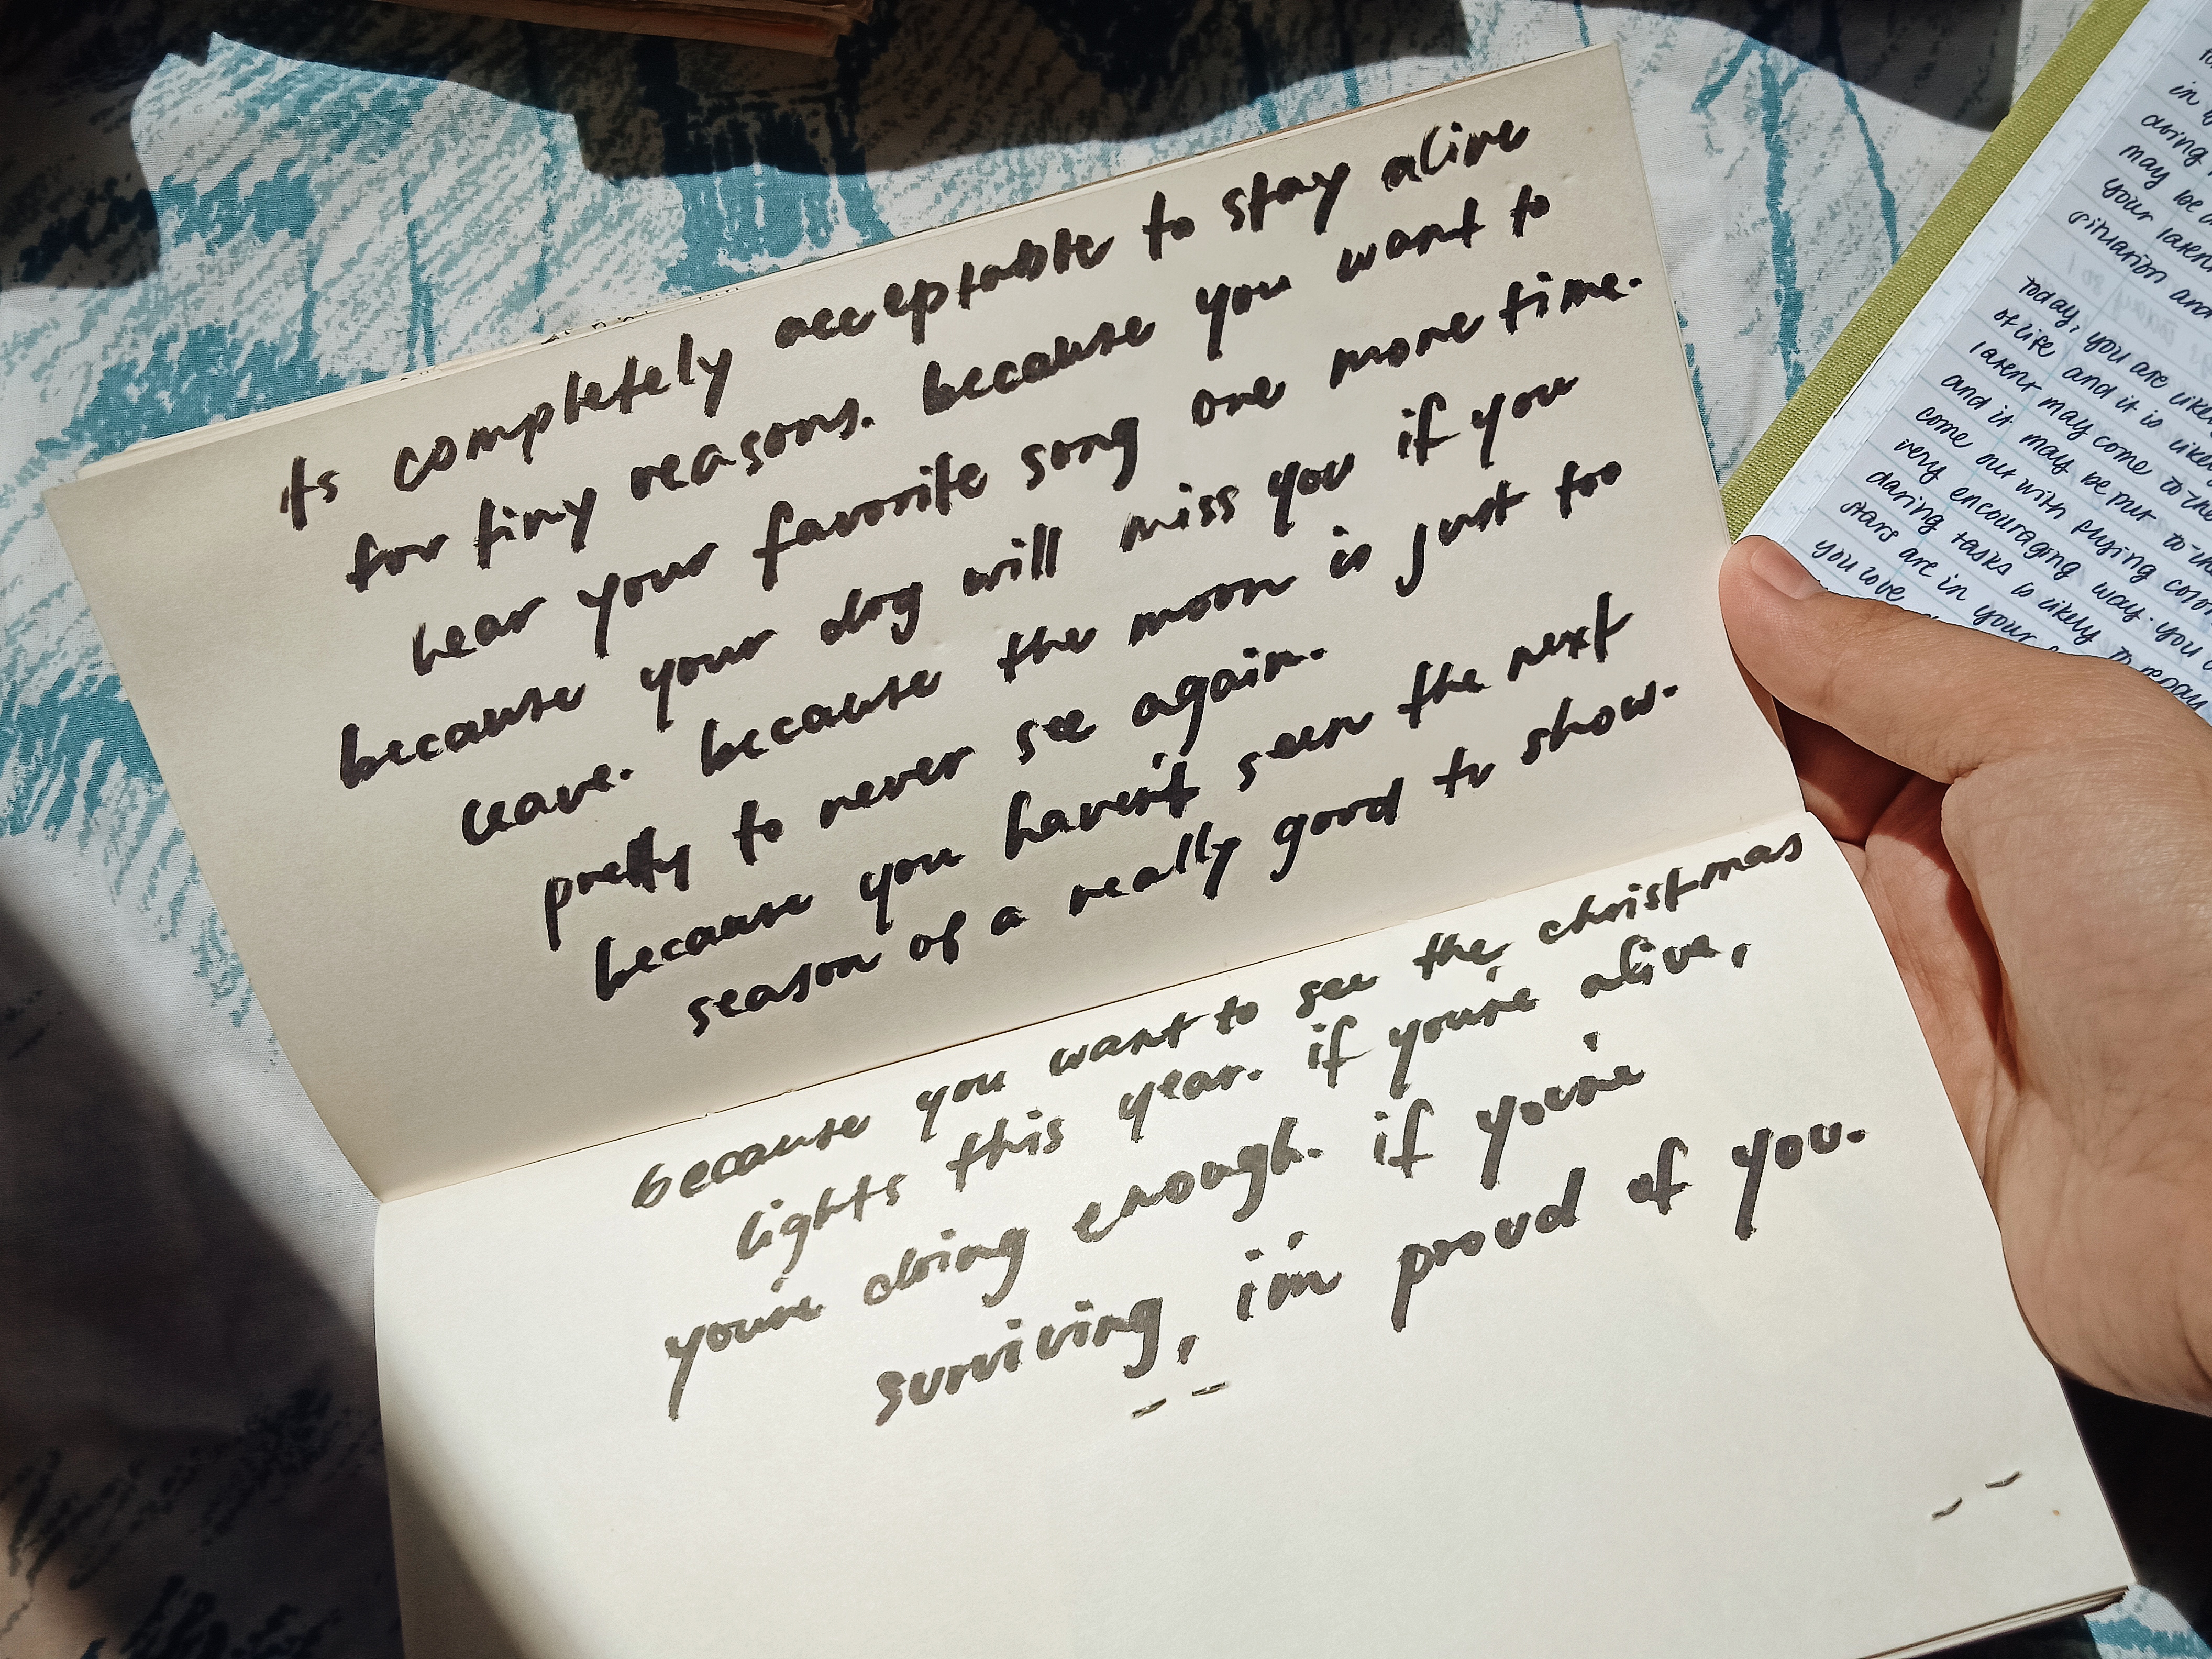 its completely acceptable to stay alive
for tiny reasons. because you want to
hear your favorite song one more time.
because your dog will miss you if you
leave. because the moon is just too
pretty to never see again.
because you haven't seen the next
season of a really good tv show.
because you want to see the christmas
lights this year. if you're alive,
you're doing enough. if you're
surviving, i'm proud of you.
in
doing
may be
your laten
situation and
today, you are likely
of life and it is likely
latent may come to the
and it may be put to the
come out with flying color
very encouraging way. you
daring tasks is likely to repay
stars are in your
you love